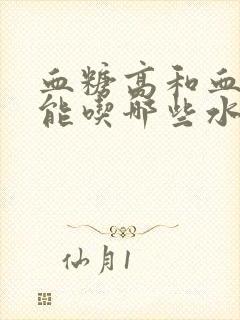 血糖高和血
能喫哪些水
仙月1